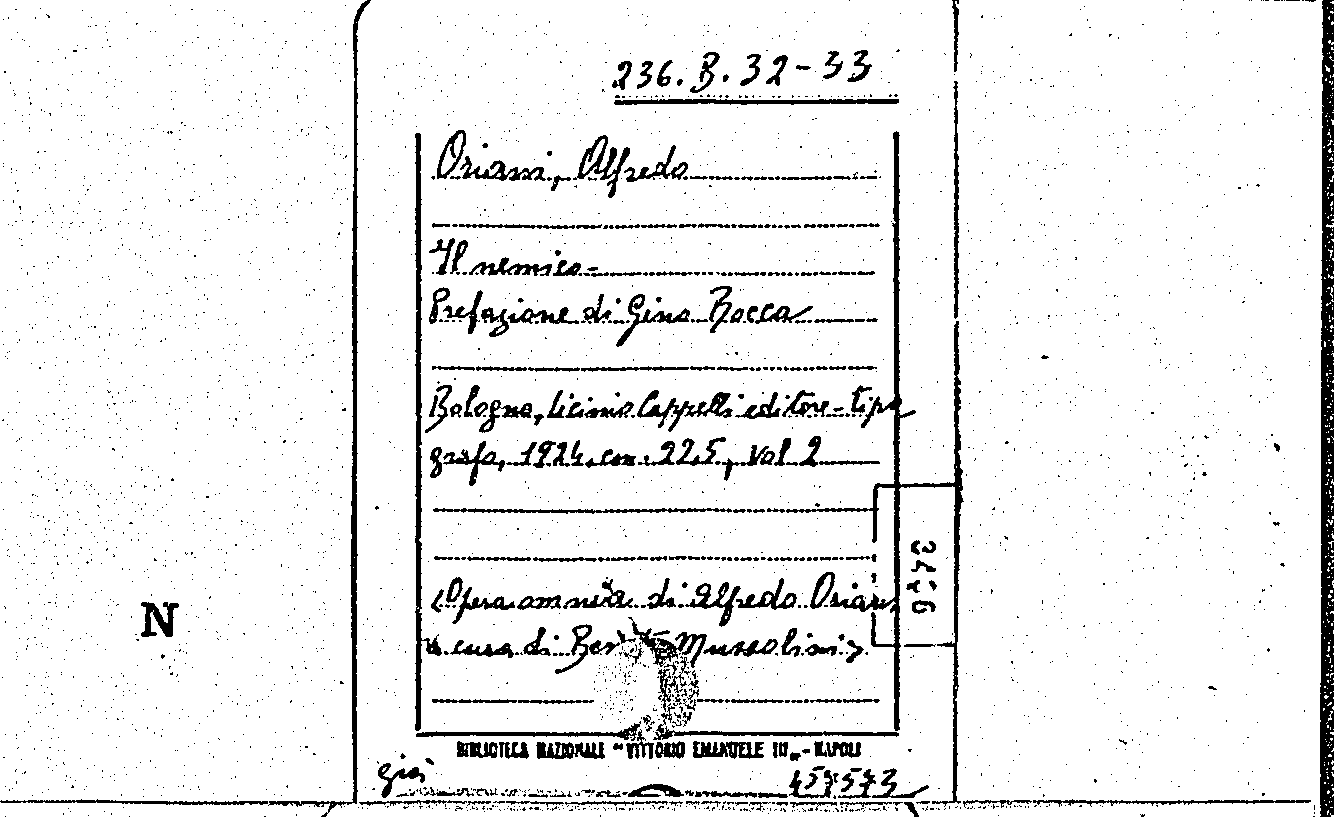 236.B.32-33
Oriani, Alfredo
Il nemico-
Prefazione di Gino Rocca
Bologna, Licinio Cappelli editore-tipo
grafo, 1924, cm. 22,5, vol 2
<Opera omnia di Alfredo Oriani
a cura di Mussolini>
3476
N
BIBLIOTECA NAZIONALE "VITTORIO EMANUELE III„ - NAPOLI
457573